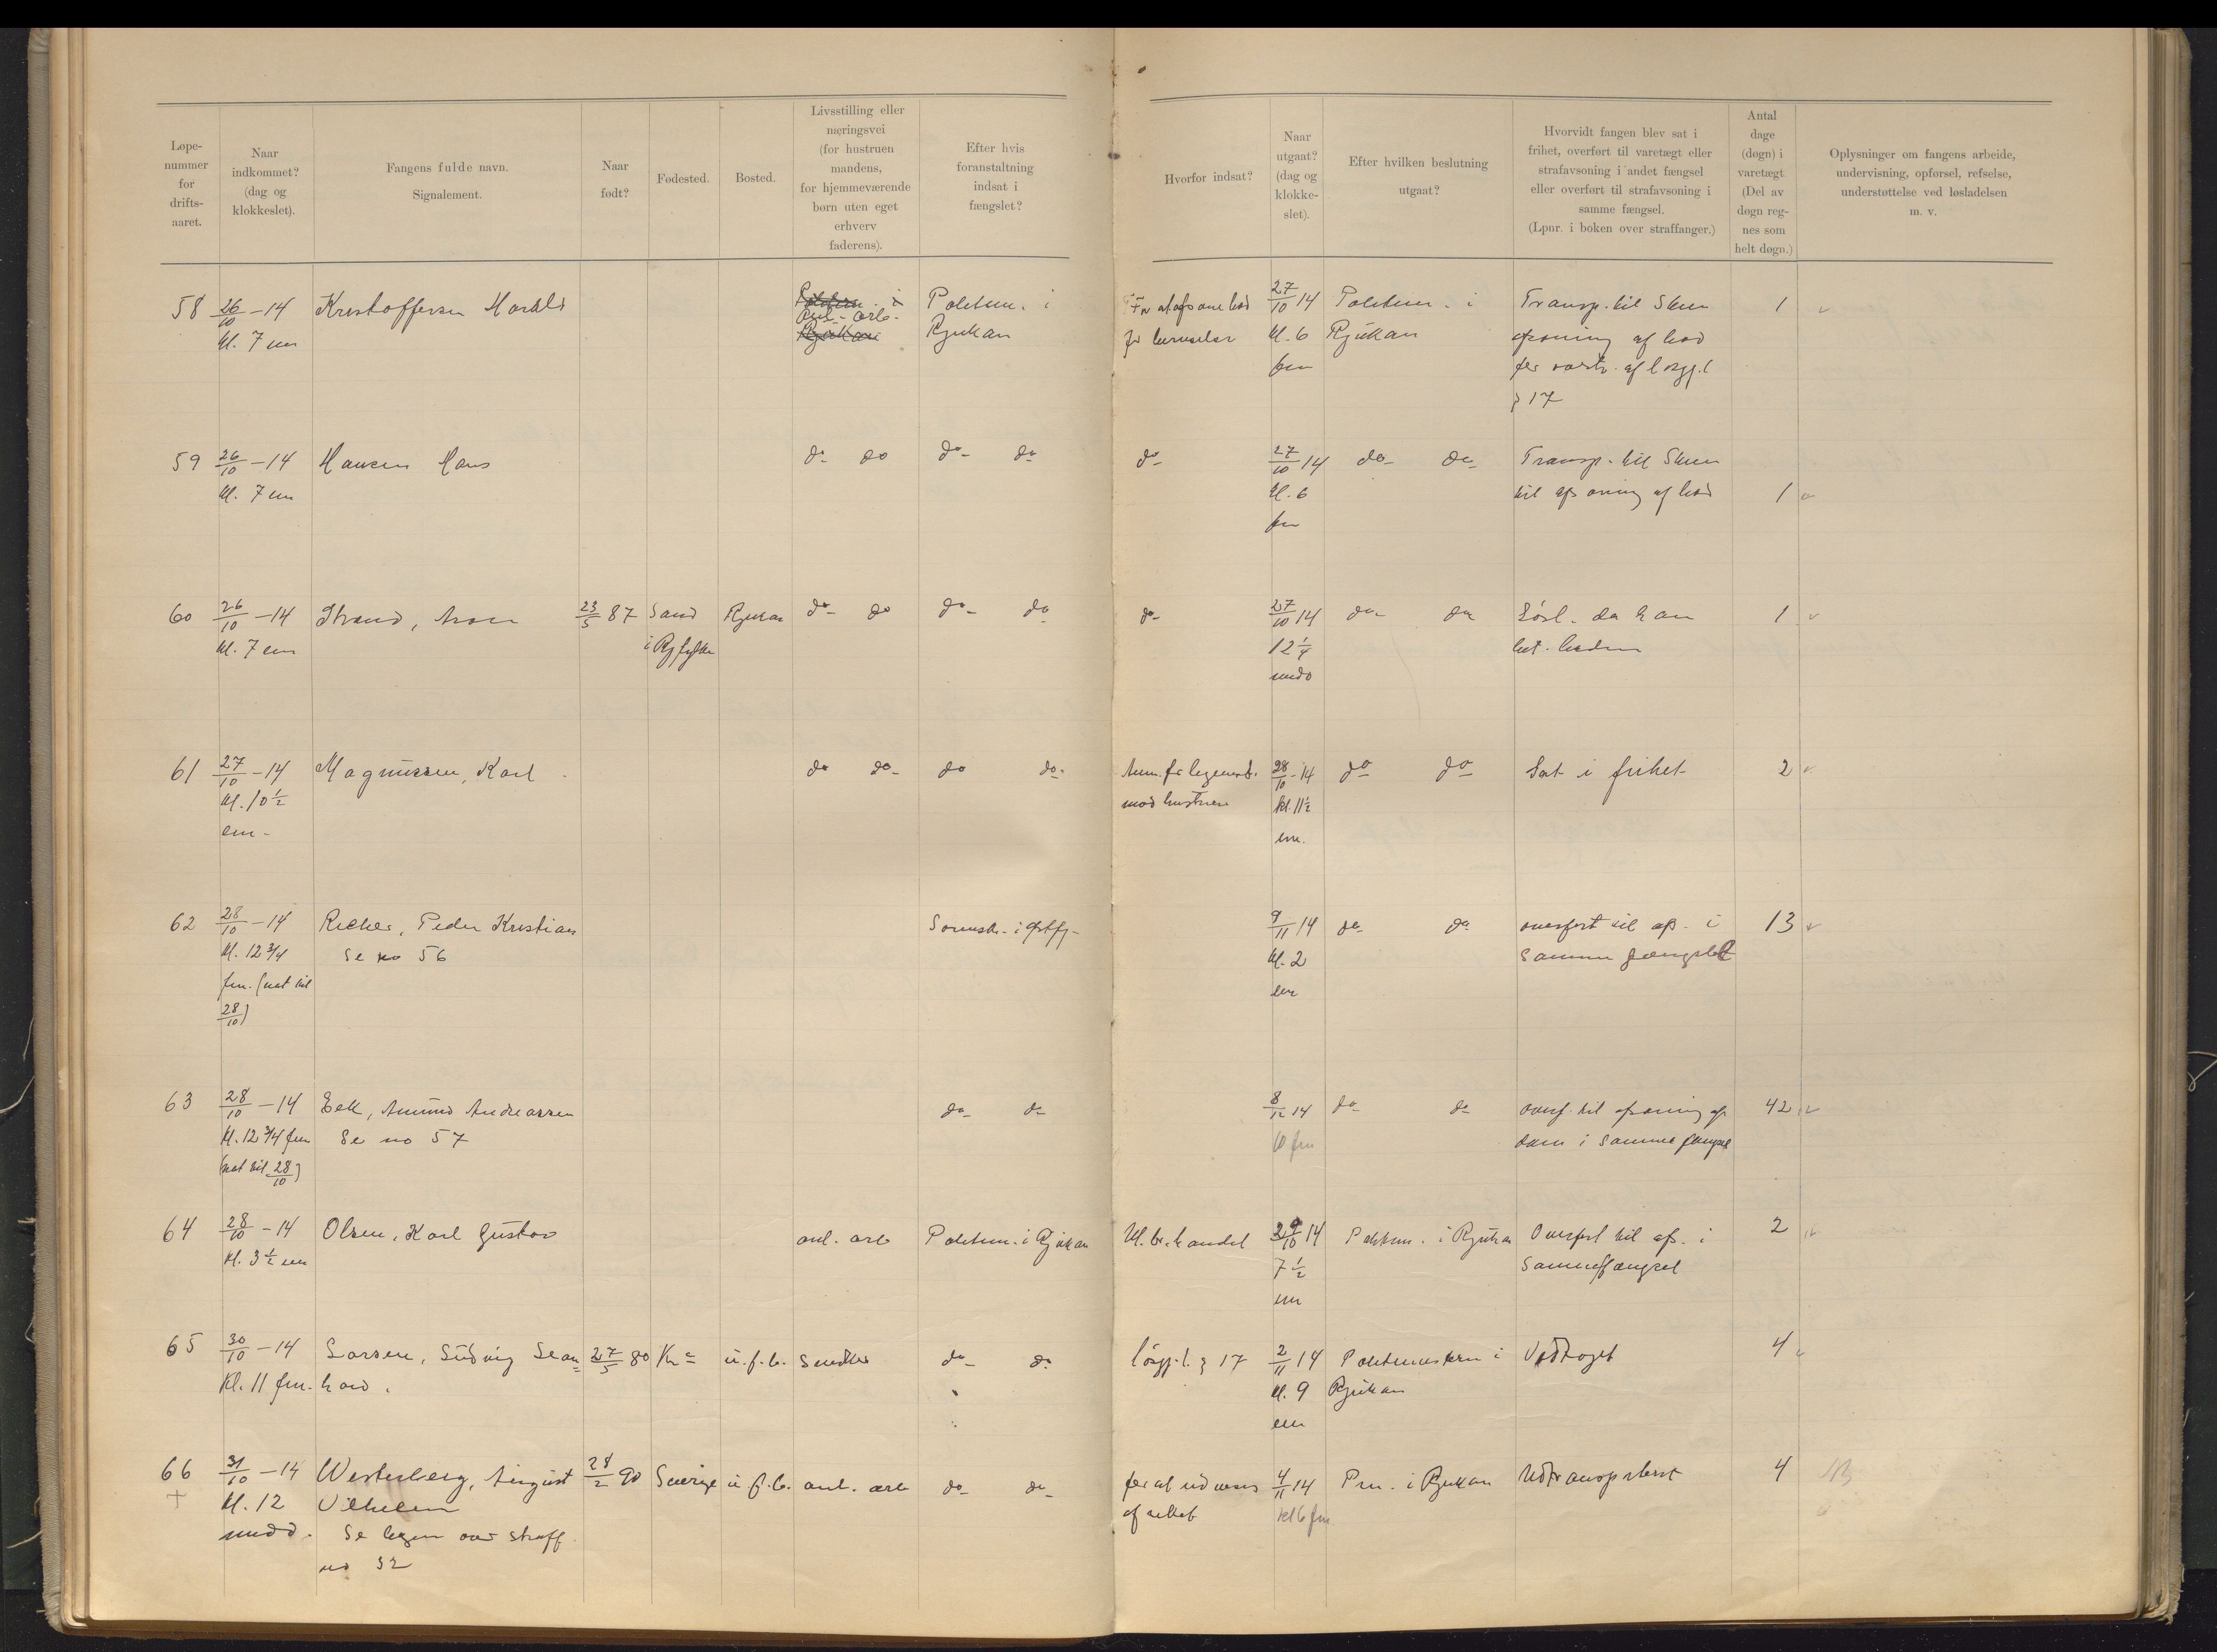 Løpe-
nummer
for
drifts-
aaret.
Naar
indkommet?
(dag og
klokkeslet).
Fangens fulde navn.
Signalement.
Naar
født?
Fødested.
Bosted.
Livsstilling eller
næringsvei
(for hustruen
mandens,
for hjemmeværende
børn uten eget
erhverv
faderens).
Efter hvis
foranstaltning
indsat i
fængslet?
Hvorfor indsat?
Naar
utgaat?
(dag og
klokke-
slet).
Efter hvilken beslutning
utgaat?
Hvorvidt fangen blev sat i
frihet, overført til varetægt eller
strafavsoning i andet fængsel
eller overført til strafavsoning i
samme fængsel.
(Lpnr. i boken over straffanger.)
Antal
dage
(døgn) i
varetægt
(Del av
døgn reg-
nes som
helt døgn.)
Oplysninger om fangens arbeide,
undervisning, opførsel, refselse,
understøttelse ved løsladelsen
m. v.
58 26/10 -14 Kristoffersen Harald
kl. 7 em
anl- arb-
Politim. i
Rjukan
For at afsone bod
for beruselse
27/10 14
kl. 6
fm
Politim. i
Rjukan
Transp. til Skien
afsoning af bod
for overtr. af løsgj.l
§ 17
1
59 26/10 -14 Hansen Hans
kl. 7 em
do do do do
do
27/10 14
kl. 6
fm
do do
Transp. til Skien
til afsoning af bod
1
60 26/10 -14 Strand, Aron 23/5 87 Sand Rjukan
kl. 7 em i Ryfylke
do do do do
do
27/10 14
12 1/4
midd
do do
Løsl. da han
bet. boden
1
61 27/10 -14 Magnussen, Karl
kl. 10 1/2
em-
do do do do
Anm. for legemsb.
mod hustruen
28/10 -14
kl. 11 1/2
em.
do do
Sat i frihet
2
62 28/10 -14 Peder Kristian
kl. 12 3/4 Se no 56
fm. (nat til
28/10)
Sorensk. i
9/11 14
kl. 2
em
do do
overført til afs. i
samme fængslet
13
63 28/10 -14 Eek, Amund Andreassen
kl. 12 3/4 fm Se no 57
(nat til 28/10)
do do
8/12 14
10 fm
do do
overf. til afsoning af
dom i samme fængsel
42
64 28/10 -14 Olsen, Karl Gustav
kl. 3 1/2 em
anl. arb Politim. i Rjukan
Ul. br.handel
29/10 14
7 1/2
em
Politim. i Rjukan
Overført til afs. i
samme fængsel
2
65 30/10 -14 Larsen, Ludvig Lean= 27/5 80 Kra u.f.b.
kl. 11 fm. hard.
do do
løsgj.l. § 17
2/11 14
kl. 9
em
Politimesteren i
Rjukan
Vedtaget
4
66 31/10 -14 Westerberg, August 28/2 90 Sverige u.f.b. anl. arb do do
kl. 12 Vilhelm
midd. Se bogen over straff.
no 32
for at udvises
af riket
4/11 14
kl 6 fm
Pm. i Rjukan
Udtransportert
4